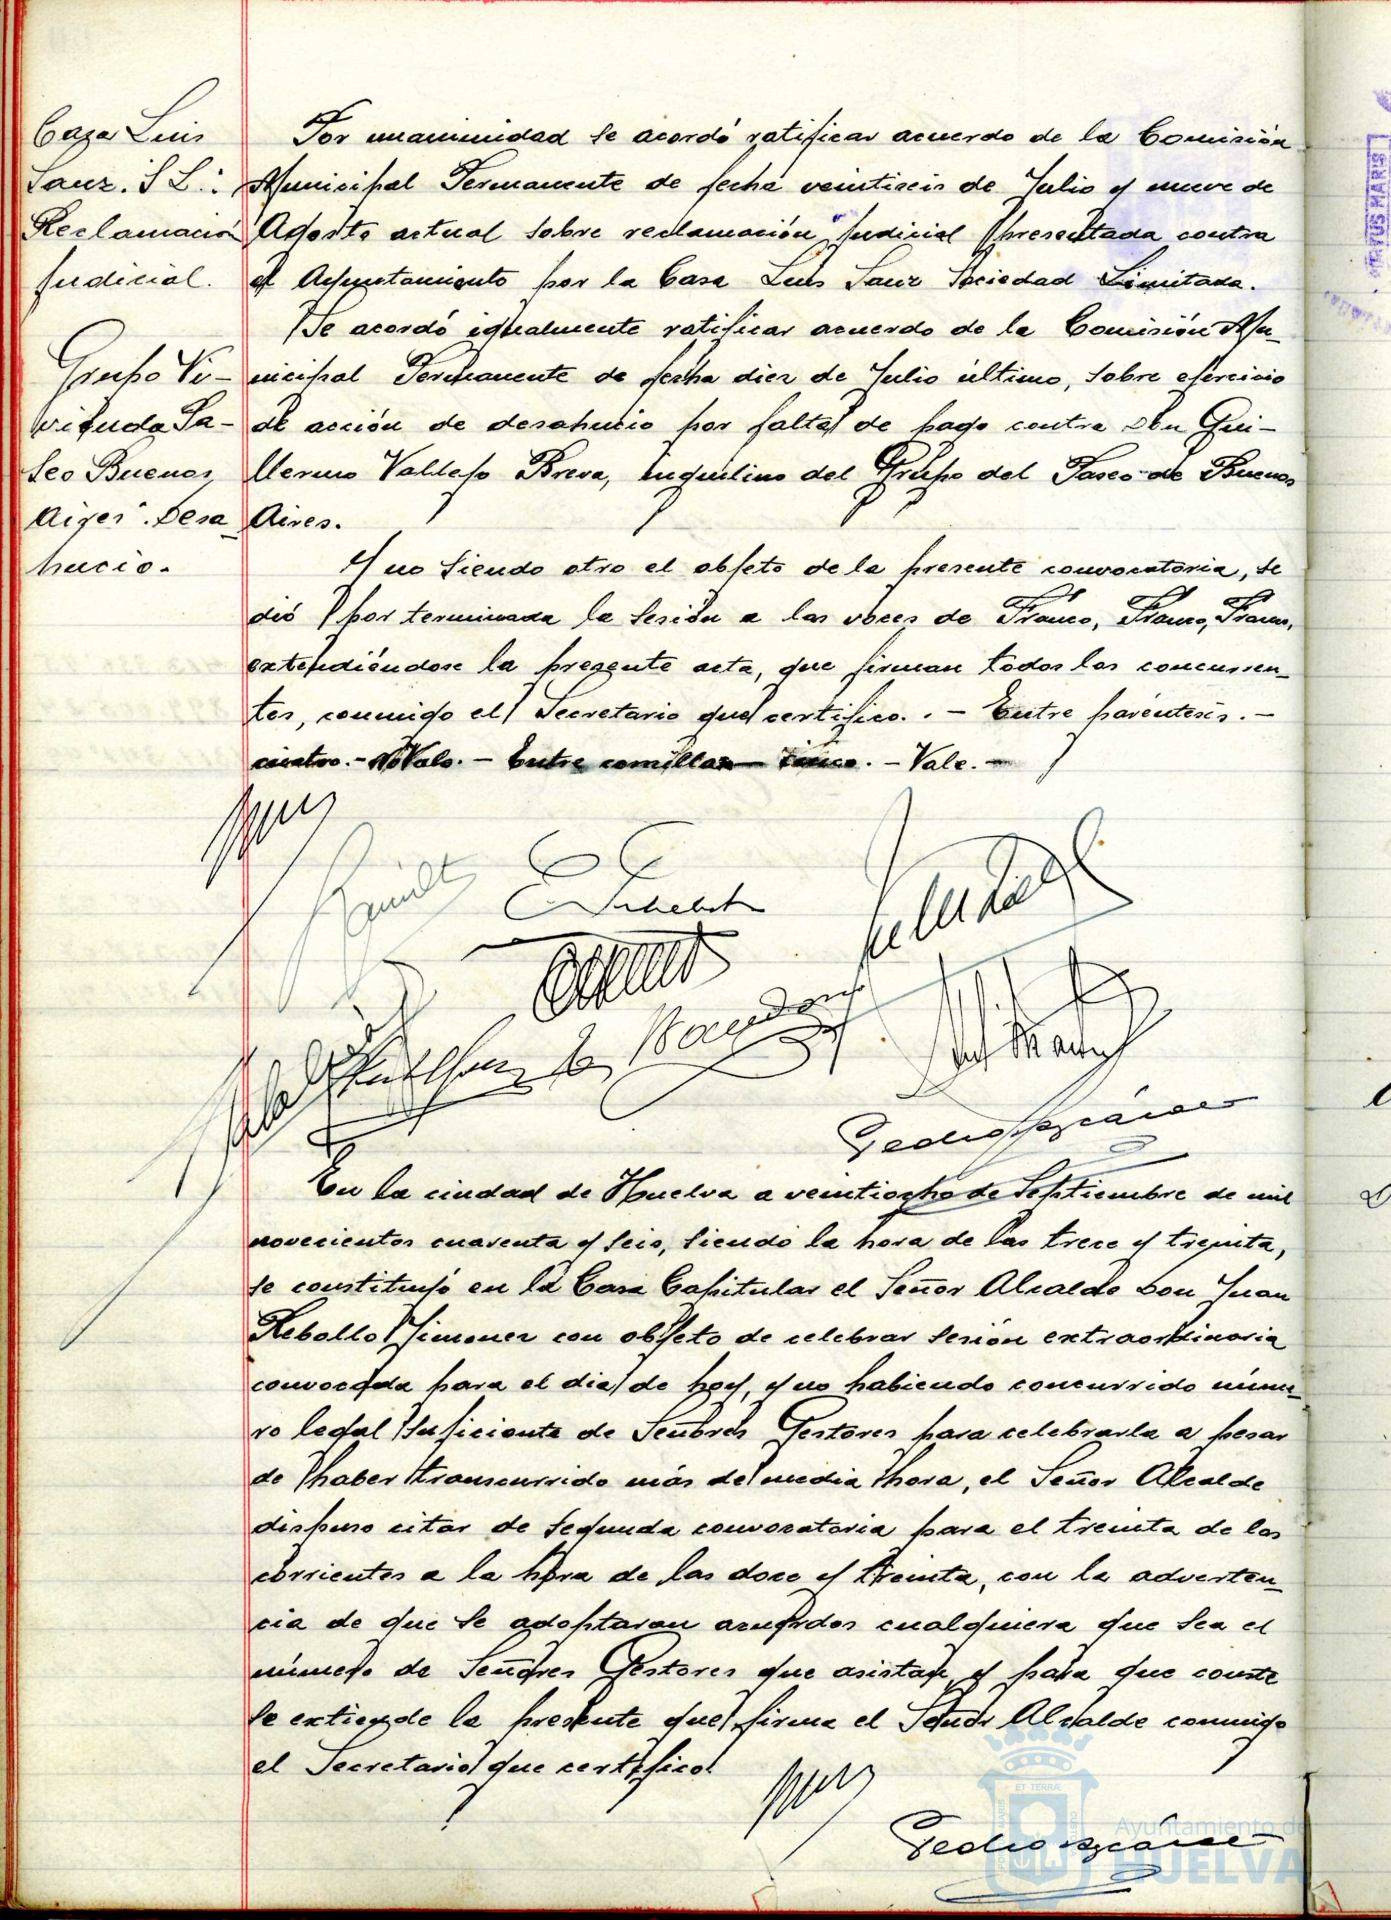 Casa Luis
Sanz. S L.:
Reclamación
judicial.
Por unanimidad se acordó ratificar acuerdo de la Comisión
Municipal Permanente de fecha veintiseis de Julio y nueve de
Agosto actual sobre reclamación judicial presentada contra
el Ayuntamiento por la Casa Luis Sanz Sociedad Limitada.
Grupo Vi-
vienda Pa-
seo Buenos
Aires". Desa-
hucio.
Se acordó igualmente ratificar acuerdo de la Comisión Mu-
nicipal Permanente de fecha diez de Julio último, sobre ejercicio
de acción de desahucio por falta de pago contra Don Gui-
llermo Vallejo Breva, inquilino del Grupo del Paseo de Buenos
Aires.
Y no siendo otro el objeto de la presente convocatoria, se
dió por terminada la sesión a las voces de Franco, Franco, Franco,
extendiéndose la presente acta, que firman todos los concurren-
tes, conmigo el Secretario que certifico. . - Entre paréntesis. -
cuatro. - No Vale. - Entre comillas - cinco. - Vale. -
En la ciudad de Huelva a veintiocho de Septiembre de mil
novecientos cuarenta y seis, siendo la hora de las trece y treinta,
se constituyó en la Casa Capitular el Señor Alcalde Don Juan
Rebollo Jimenez con objeto de celebrar sesión extraordinaria
convocada para el dia de hoy, y no habiendo concurrido núme-
ro legal suficiente de Señores Gestores para celebrarla a pesar
de haber transcurrido más de media hora, el Señor Alcalde
dispuso citar de segunda convocatoria para el treinta de los
corrientes a la hora de las doce y treinta, con la adverten-
cia de que se adoptaran acuerdos cualquiera que sea el
número de Señores Gestores que asistan, y para que conste
se extiende la presente que firma el Señor Alcalde conmigo
el Secretario que certifico
ET TERRÆ
Ayuntamiento de
HUELVA